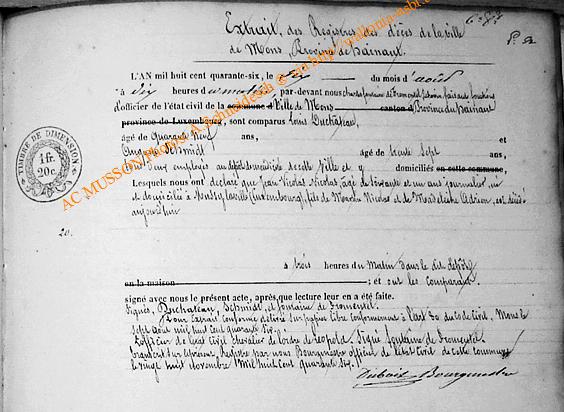 Extrait, des Registres des décès de la Ville
de Mons, Province de Hainaut.
L'AN mil huit cent quarante-six, le six du mois d'août
à dix heures du matin, par-devant nous
d'officier de l'état civil de la commune d Ville de Mons canton d Province du Hainaut
province de Luxembourg, sont comparus Louis Duchateau,
âgé de Quarante Neuf ans, et
Schmidt âgé de trente Sept ans,
tous deux employés au dépôt de mendicité de cette Ville et y domiciliés en cette commune,
Lesquels nous ont déclaré que Jean Nicolas Nicolas, âgé de soixante et un ans journalier, né
et domicilié à Mussy la ville (Luxembourg), fils de Nicolas et de Marie, est décédé
aujourd'hui
20.
à trois heures du Matin dans le dit dépôt,
en la maison ; et ont les comparans
signé avec nous le présent acte, après que lecture leur en a été faite.
Signés, Duchateau, Schmidt, et fontaine de fromentel.
Pour Extrait conforme délivré sur papier libre conformément à l'art 80 du code Civil, Mons le
sept août mil huit cent quarante Six.
L'officier de l'état Civil Chevalier de l'ordre de Léopold, Signé fontaine de fromentel.
Registre par nous Bourgmestre officier de l'état Civil de cette commune
le vingt huit Novembre Mil huit Cent quarante Six.
Dubois Bourgmestre
TIMBRE DE DIMENSION
1 fr.
20 c.